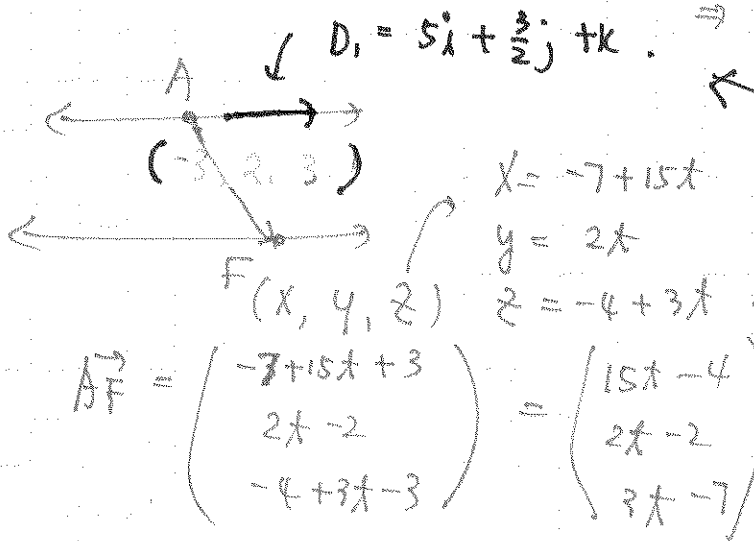 D₁ = 5i + 3/2 j + k .
⇒
A
(-3, 2, 3)
F (x, y, z)
x = -7+15t
y = 2t
z = -4+3t
AF = (-7+15t+3, 2t-2, -4+3t-3) = (15t-4, 2t-2, 3t-7)